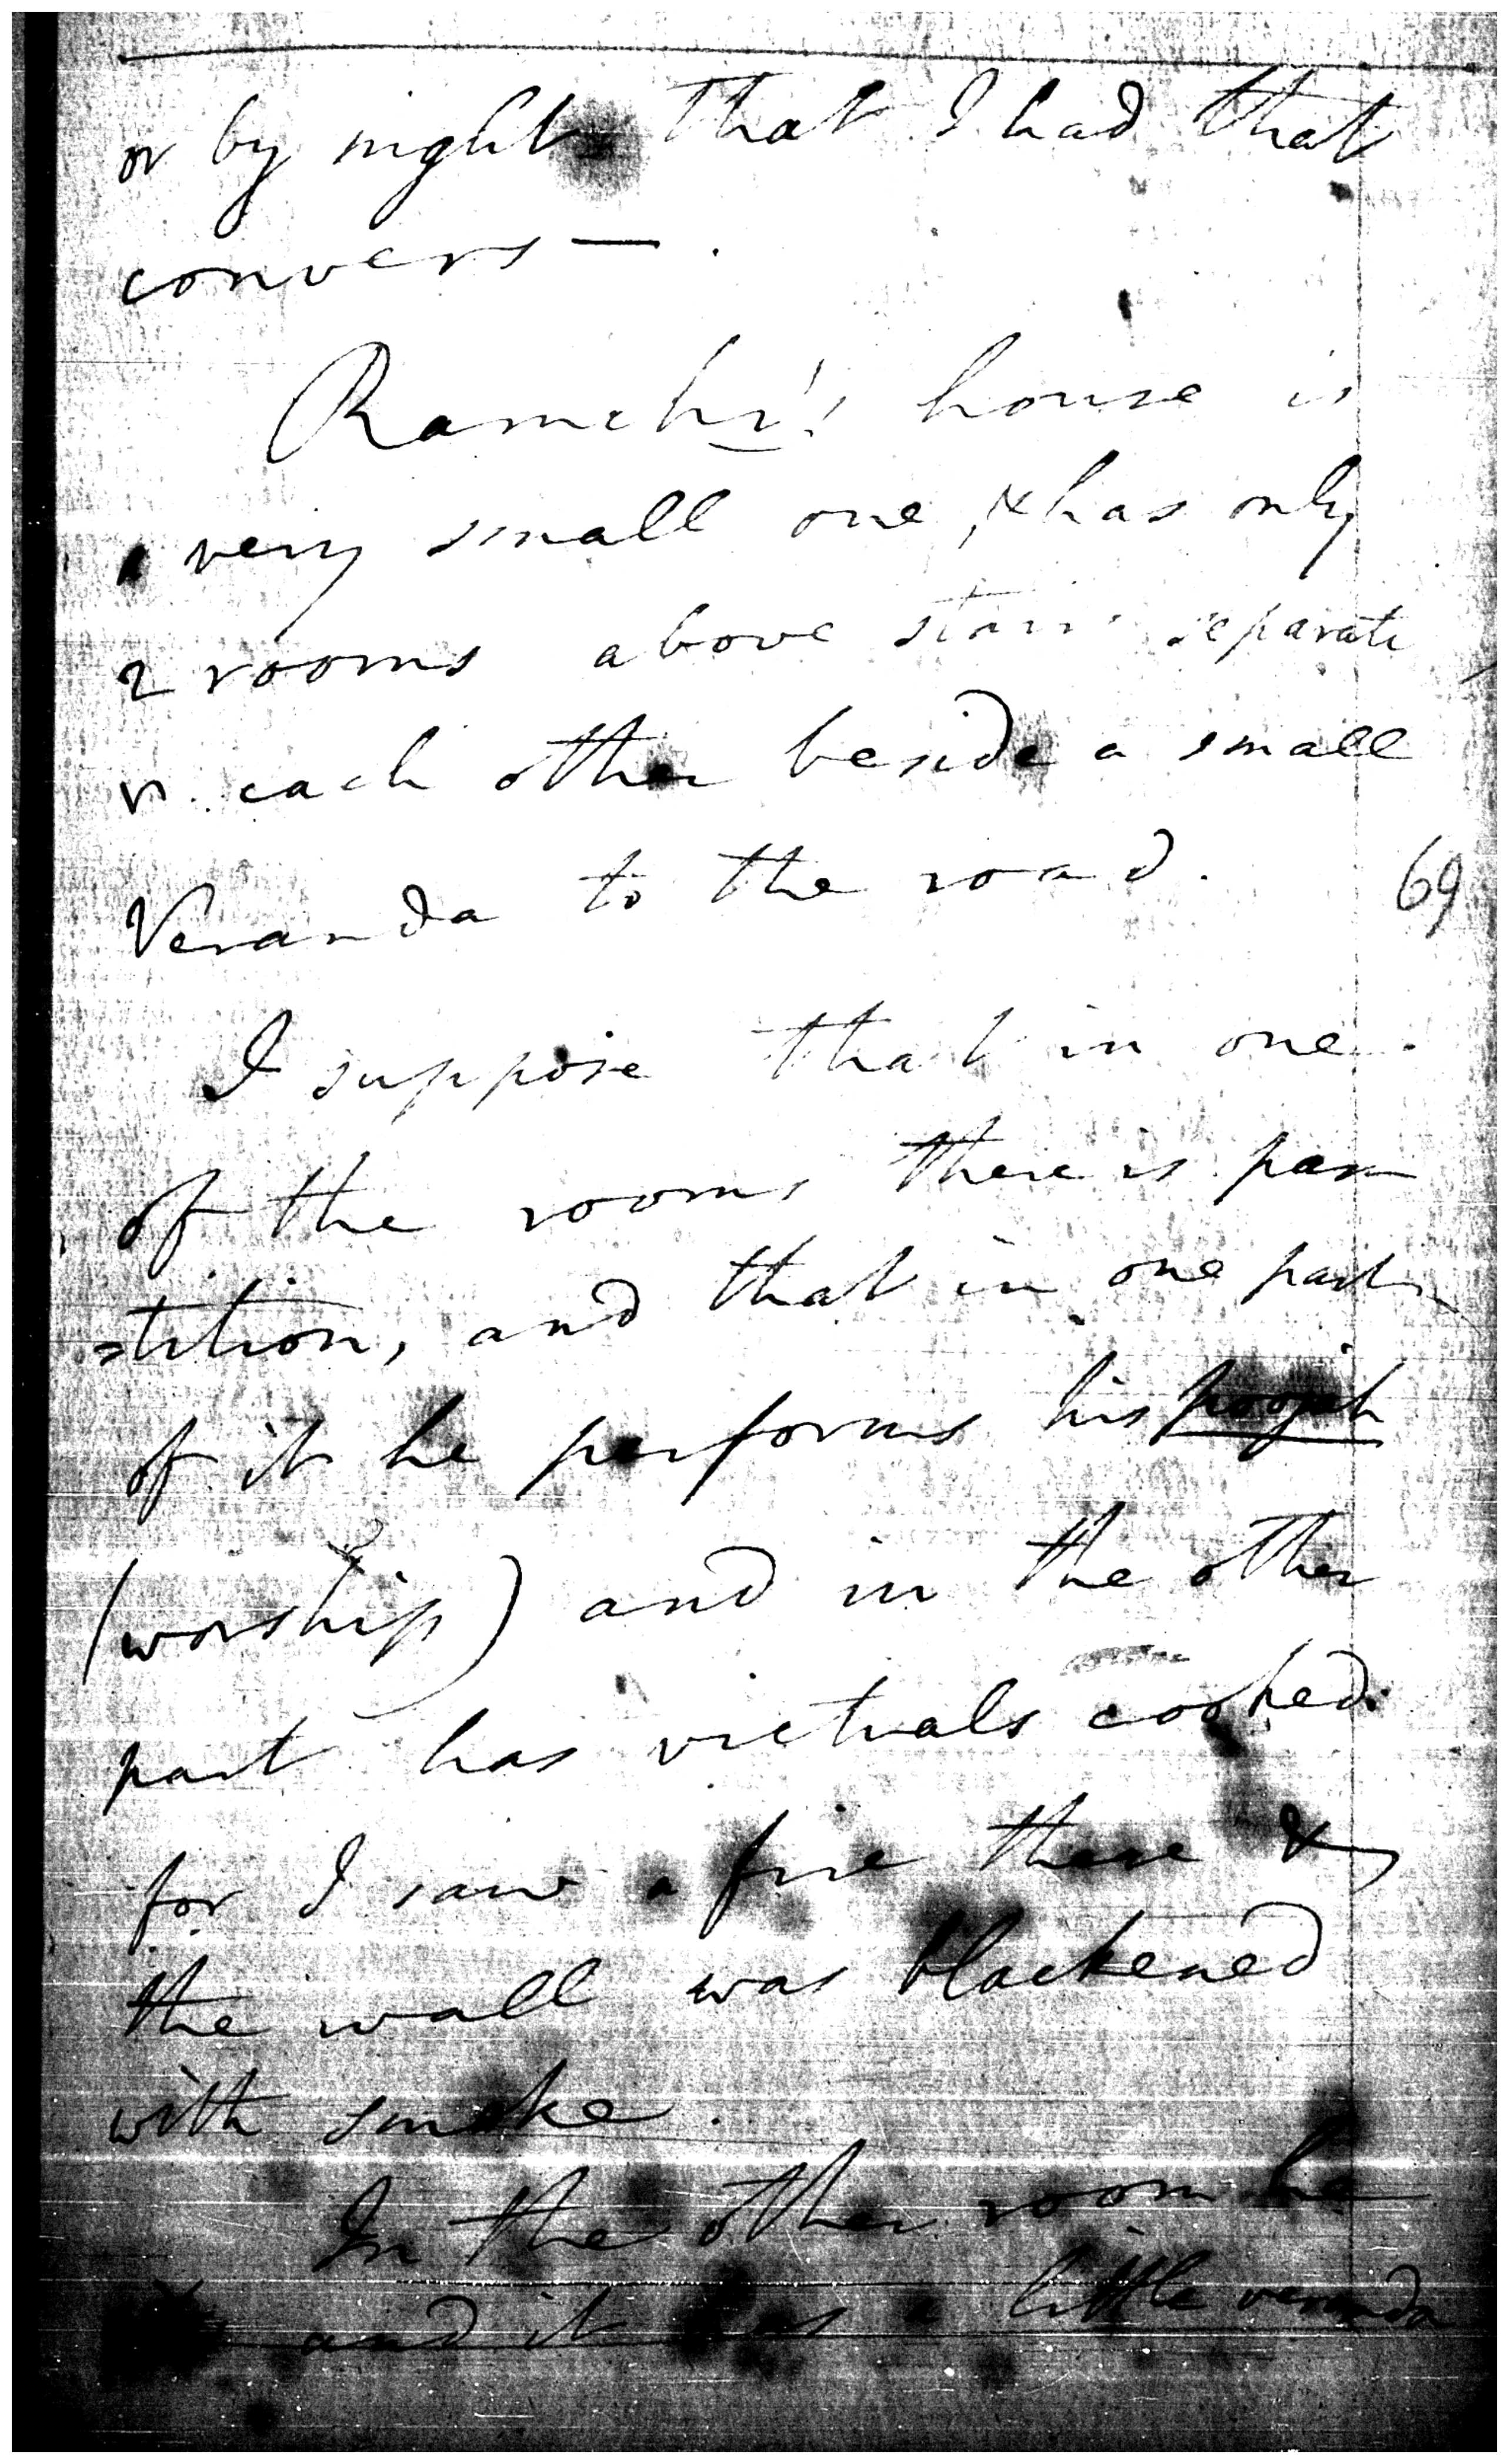 or by night that I had that
convers—.
Ramchr's house is
a very small one, & has only
2 rooms above stairs separate
fr. each other beside a small
Veranda to the road.
69
I suppose that in one
of the rooms there is par
=tition, and that in one part
of it he performs his poojah
(worship) and in the other
part has victuals cooked.
for I saw a fire there &
the wall was blackened
with smoke.
In the other room he
and it has a little veranda